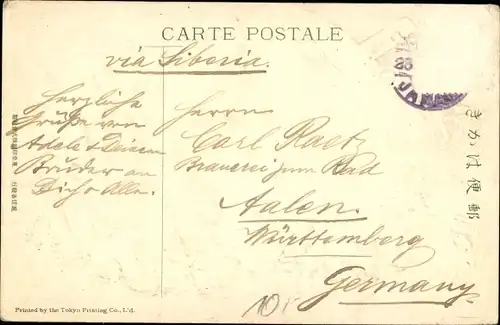 CARTE POSTALE
via Siberia.
28
JAPAN
Herzliche
Grüße von
Adele & Deinem
Bruder an
Dich & Alle.
Herrn
Carl Raetz
Brauerei zum Rad
Aalen.
Württemberg
Germany
きかは便郵
Printed by the Tokyo Printing Co., L'd.